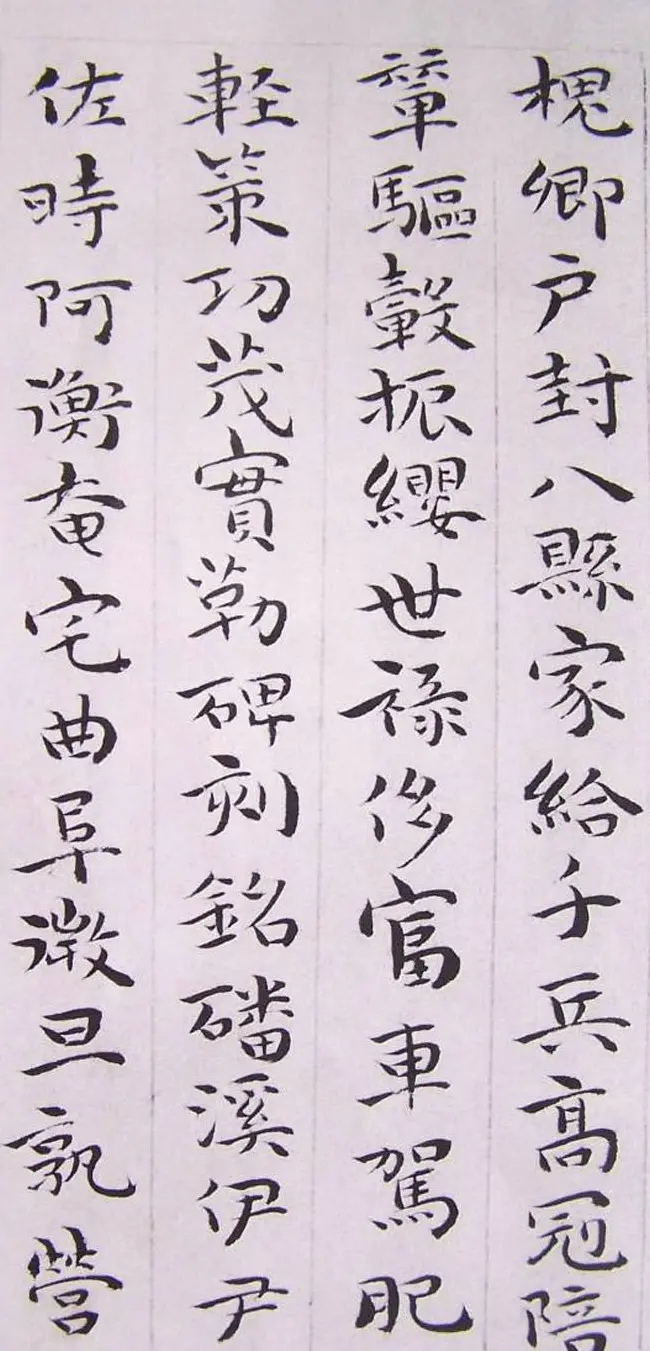 槐卿户封八縣家給千兵高冠陪
輦驅轂振纓世禄侈富車駕肥
輕策功茂實勒碑刻銘磻溪伊尹
佐時阿衡奄宅曲阜微旦孰營